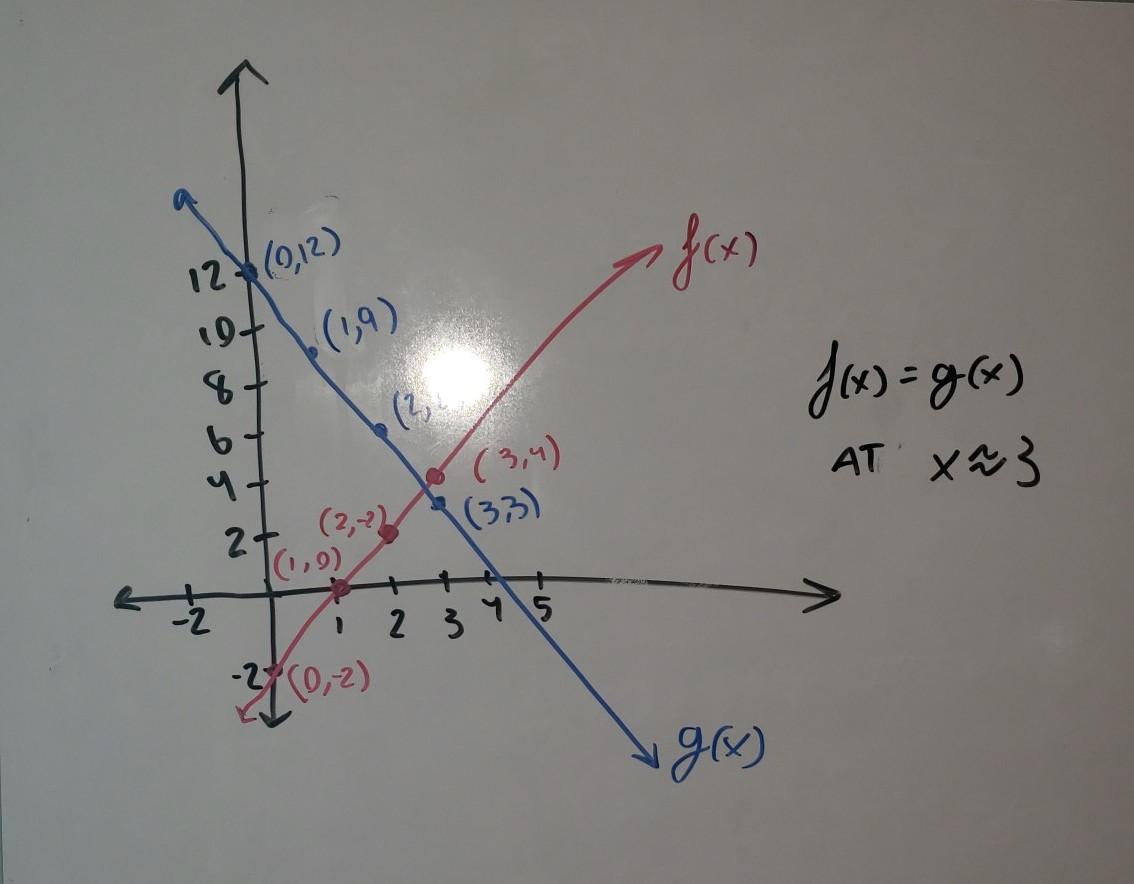 f(x)
(0,12)
12
(1,9)
10
f(x) = g(x)
8
(2,
6
AT x≈3
(3,4)
4
(3,3)
(2,-2)
2
(1,0)
-2
1
2
3
4
5
-2
(0,-2)
g(x)